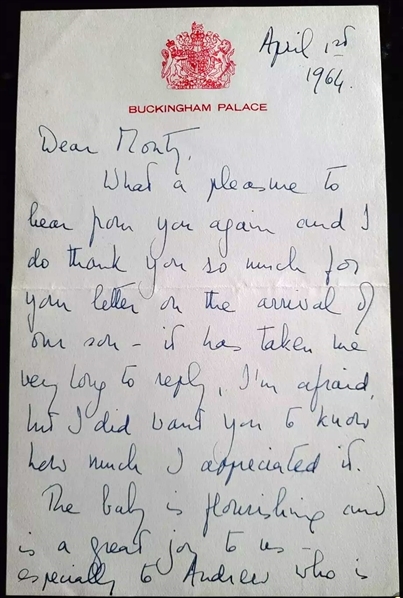 April 1st
1964.
BUCKINGHAM PALACE
Dear Monty,
What a pleasure to
hear from you again and I
do thank you so much for
your letter on the arrival of
our son - it has taken me
very long to reply, I'm afraid,
but I did want you to know
how much I appreciated it.
The baby is flourishing and
is a great joy to us -
especially to Andrew who is